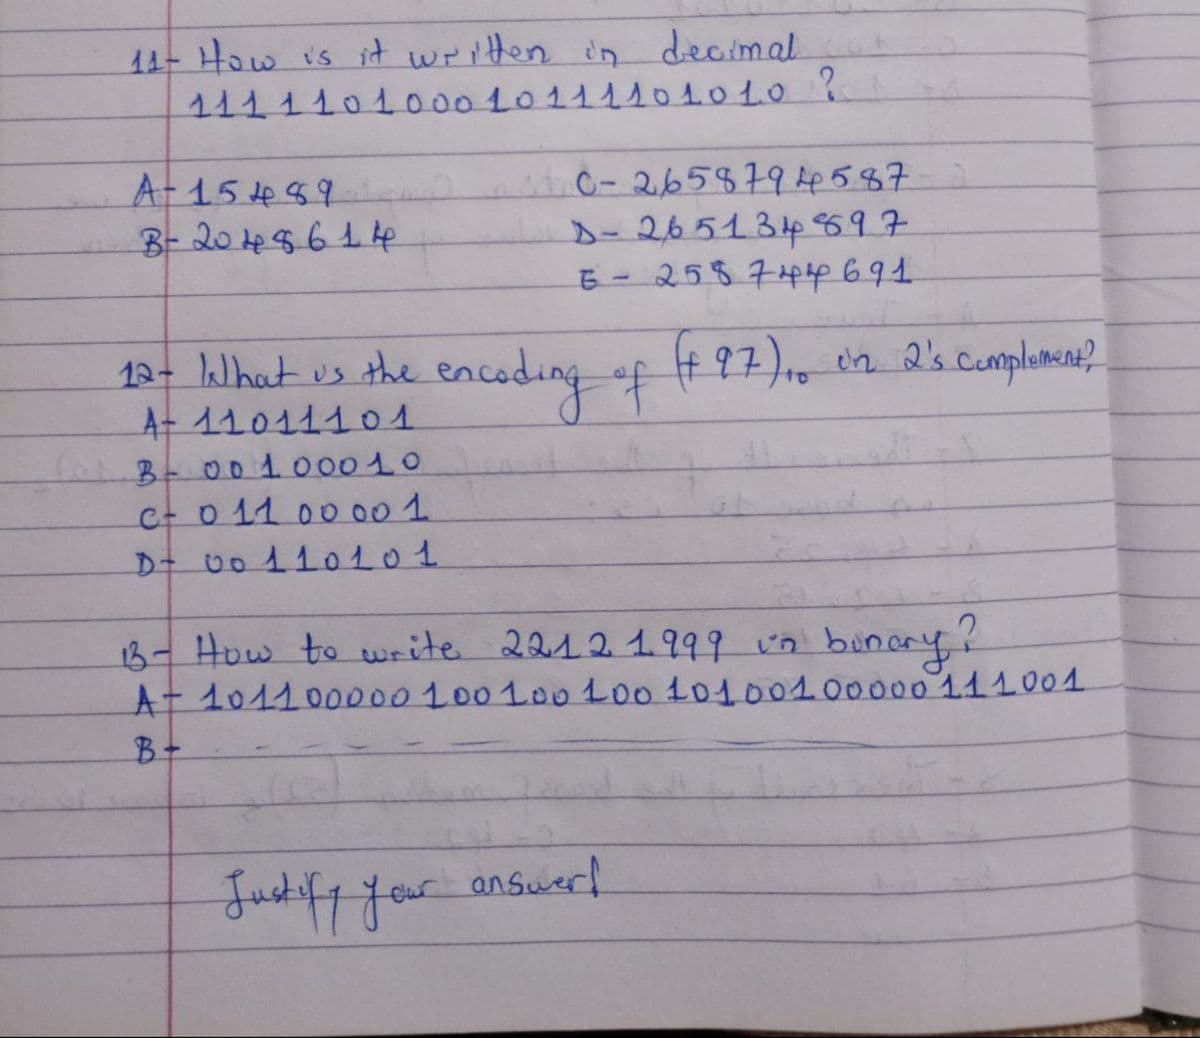 11- How is it written in decimal
1111101000101111101010 ?
A- 15489
B- 2048614
C- 2658794587
D- 265134897
E - 258744691
12- What is the encoding of (+97)10 in 2's complement?
A- 11011101
B- 00100010
C- 01100001
D- 00110101
13- How to write 22121999 in binary?
A- 101100000100100100101001000001 11001
B-
Justify your answer!